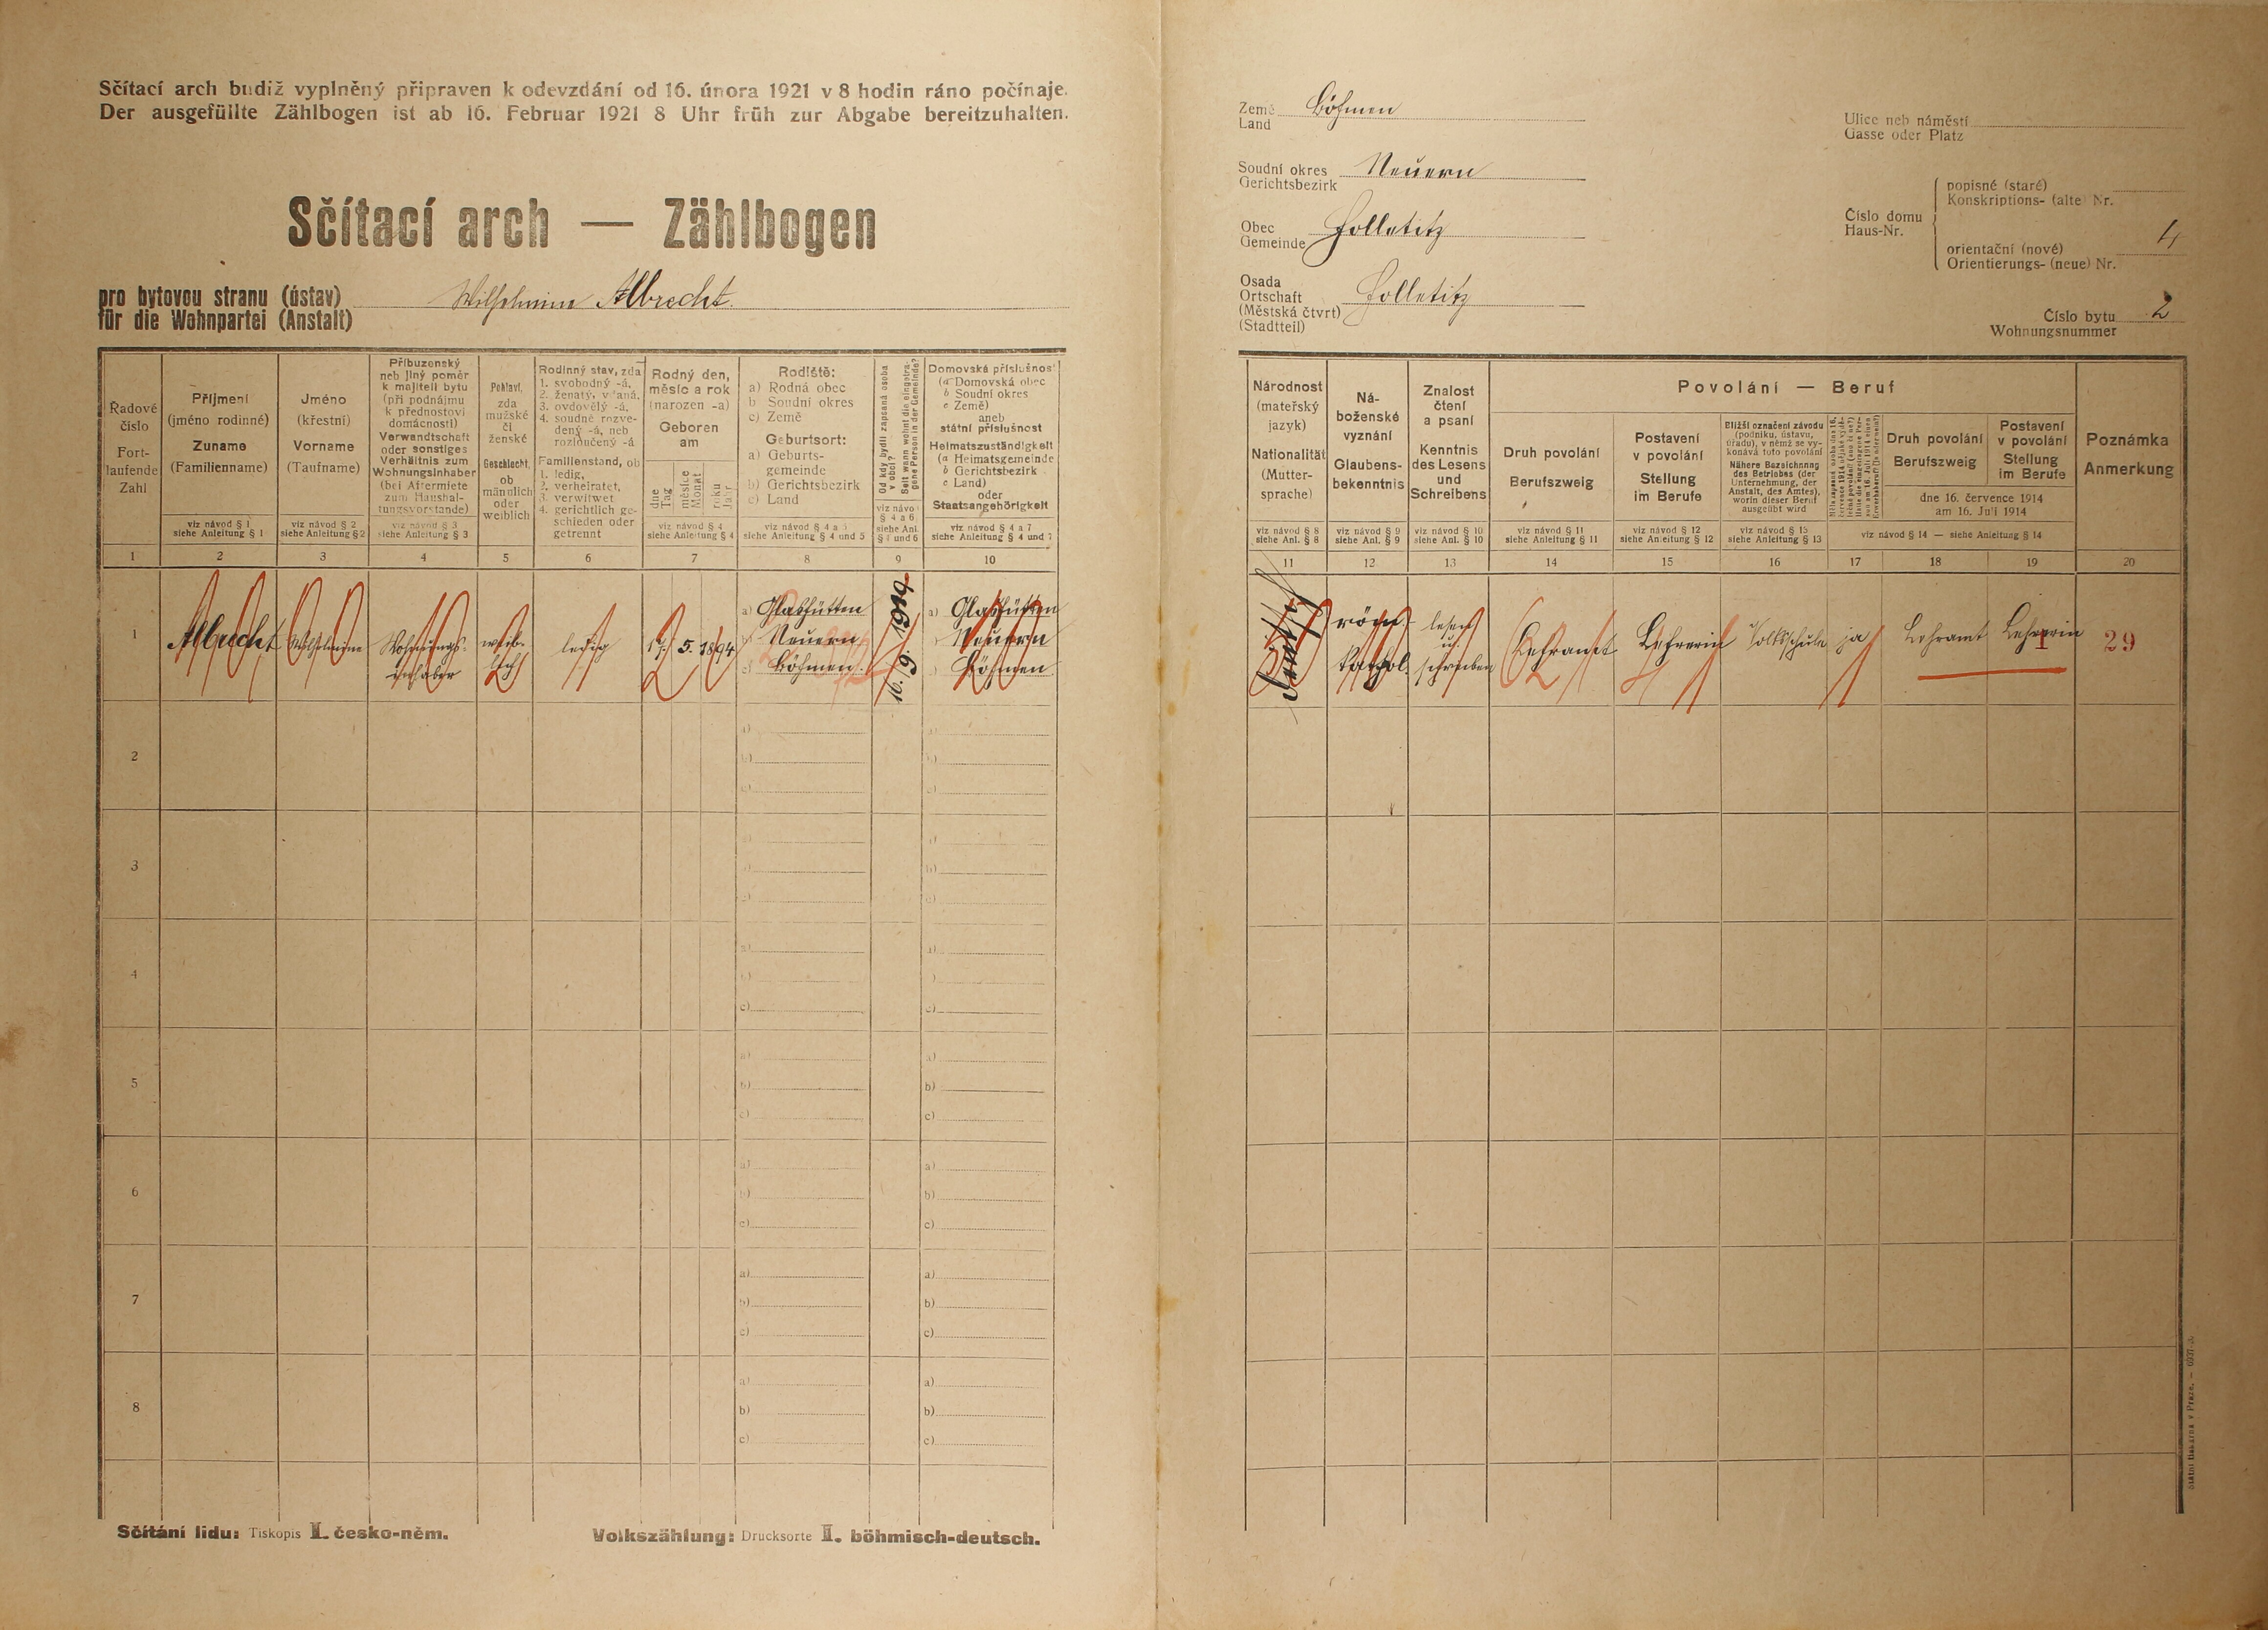 Sčítací arch budiž vyplněný připraven k odevzdání od 16. února 1921 v 8 hodin ráno počínaje.
Der ausgefüllte Zählbogen ist ab 16. Februar 1921 8 Uhr früh zur Abgabe bereitzuhalten.
Sčítací arch — Zählbogen
pro bytovou stranu (ústav)
für die Wohnpartei (Anstalt)
Wilhelmine Albrecht.
Země
Land
Böhmen
Soudní okres
Gerichtsbezirk
Neuern
Obec
Gemeinde
Holletitz
Osada
Ortschaft
(Městská čtvrt)
(Stadtteil)
Holletitz
Ulice neb náměstí
Gasse oder Platz
Číslo domu
Haus-Nr.
popisné (staré)
Konskriptions- (alte) Nr.
orientační (nové)
Orientierungs- (neue) Nr.
4
Číslo bytu
Wohnungsnummer
2
Řadové
číslo
Fort-
laufende
Zahl
1
Příjmení
(jméno rodinné)
Zuname
(Familienname)
viz návod § 1
siehe Anleitung § 1
2
Jméno
(křestní)
Vorname
(Taufname)
viz návod § 2
siehe Anleitung § 2
3
Příbuzenský
neb jiný poměr
k majiteli bytu
(při podnájmu
k přednostovi
domácnosti)
Verwandtschaft
oder sonstiges
Verhältnis zum
Wohnungsinhaber
(bei Aftermiete
zum Haushal-
tungsvorstande)
viz návod § 3
siehe Anleitung § 3
4
Pohlaví,
zda
mužské
či
ženské
Geschlecht,
ob
männlich
oder
weiblich
5
Rodinný stav, zda
1. svobodný -á,
2. ženatý, vdaná,
3. ovdovělý -á,
4. soudně rozve-
dený -á, neb
rozloučený -á
Familienstand, ob
1. ledig,
2. verheiratet,
3. verwitwet
4. gerichtlich ge-
schieden oder
getrennt
6
Rodný den,
měsíc a rok
(narozen -a)
Geboren
am
dne
Tag
měsíce
Monat
roku
Jahr
viz návod § 4
siehe Anleitung § 4
7
Rodiště:
a) Rodná obec
b) Soudní okres
c) Země
Geburtsort:
a) Geburts-
gemeinde
b) Gerichtsbezirk
c) Land
viz návod § 4 a 5
siehe Anleitung § 4 und 5
8
Od kdy bydlí zapsaná osoba
v obci?
Seit wann wohnt die eingetra-
gene Person in der Gemeinde?
viz návod
§ 4 a 6
siehe Anl.
§ 4 und 6
9
Domovská příslušnost
(a Domovská obec
b Soudní okres
c Země)
aneb
státní příslušnost
Heimatszuständigkeit
(a Heimatsgemeinde
b Gerichtsbezirk
c Land)
oder
Staatsangehörigkeit
viz návod § 4 a 7
siehe Anleitung § 4 und 7
10
Národnost
(mateřský
jazyk)
Nationalität
(Mutter-
sprache)
viz návod § 8
siehe Anl. § 8
11
Ná-
boženské
vyznání
Glaubens-
bekenntnis
viz návod § 9
siehe Anl. § 9
12
Znalost
čtení
a psaní
Kenntnis
des Lesens
und
Schreibens
viz návod § 10
siehe Anl. § 10
13
Povolání — Beruf
Druh povolání
Berufszweig
viz návod § 11
siehe Anleitung § 11
14
Postavení
v povolání
Stellung
im Berufe
viz návod § 12
siehe Anleitung § 12
15
Bližší označení závodu
(podniku, ústavu,
úřadu), v němž se vy-
konává toto povolání
Nähere Bezeichnung
des Betriebes (der
Unternehmung, der
Anstalt, des Amtes),
worin dieser Beruf
ausgeübt wird
viz návod § 13
siehe Anleitung § 13
16
17
Druh povolání
Berufszweig
Postavení
v povolání
Stellung
im Berufe
dne 16. července 1914
am 16. Juli 1914
viz návod § 14 — siehe Anleitung § 14
18
19
Poznámka
Anmerkung
20
1
Albrecht
Wilhelmine
Wohnungs-
inhaber
weib-
lich
ledig
5. 1894
a) Glashütten
b) Neuern
c) Böhmen.
16. 9. 1919
a) Glashütten
b) Neuern
c) Böhmen
deutsch
röm.
kathol.
lesen
u.
schreiben
Lehramt
Lehrerin
Volksschule
ja
Lehramt
Lehrerin
29
2
a)
b)
c)
a)
b)
c)
3
a)
b)
c)
a)
b)
c)
4
a)
b)
c)
a)
b)
c)
5
a)
b)
c)
a)
b)
c)
6
a)
b)
c)
a)
b)
c)
7
a)
b)
c)
a)
b)
c)
8
a)
b)
c)
a)
b)
c)
Sčítání lidu: Tiskopis I. česko-něm.
Volkszählung: Drucksorte I. böhmisch-deutsch.